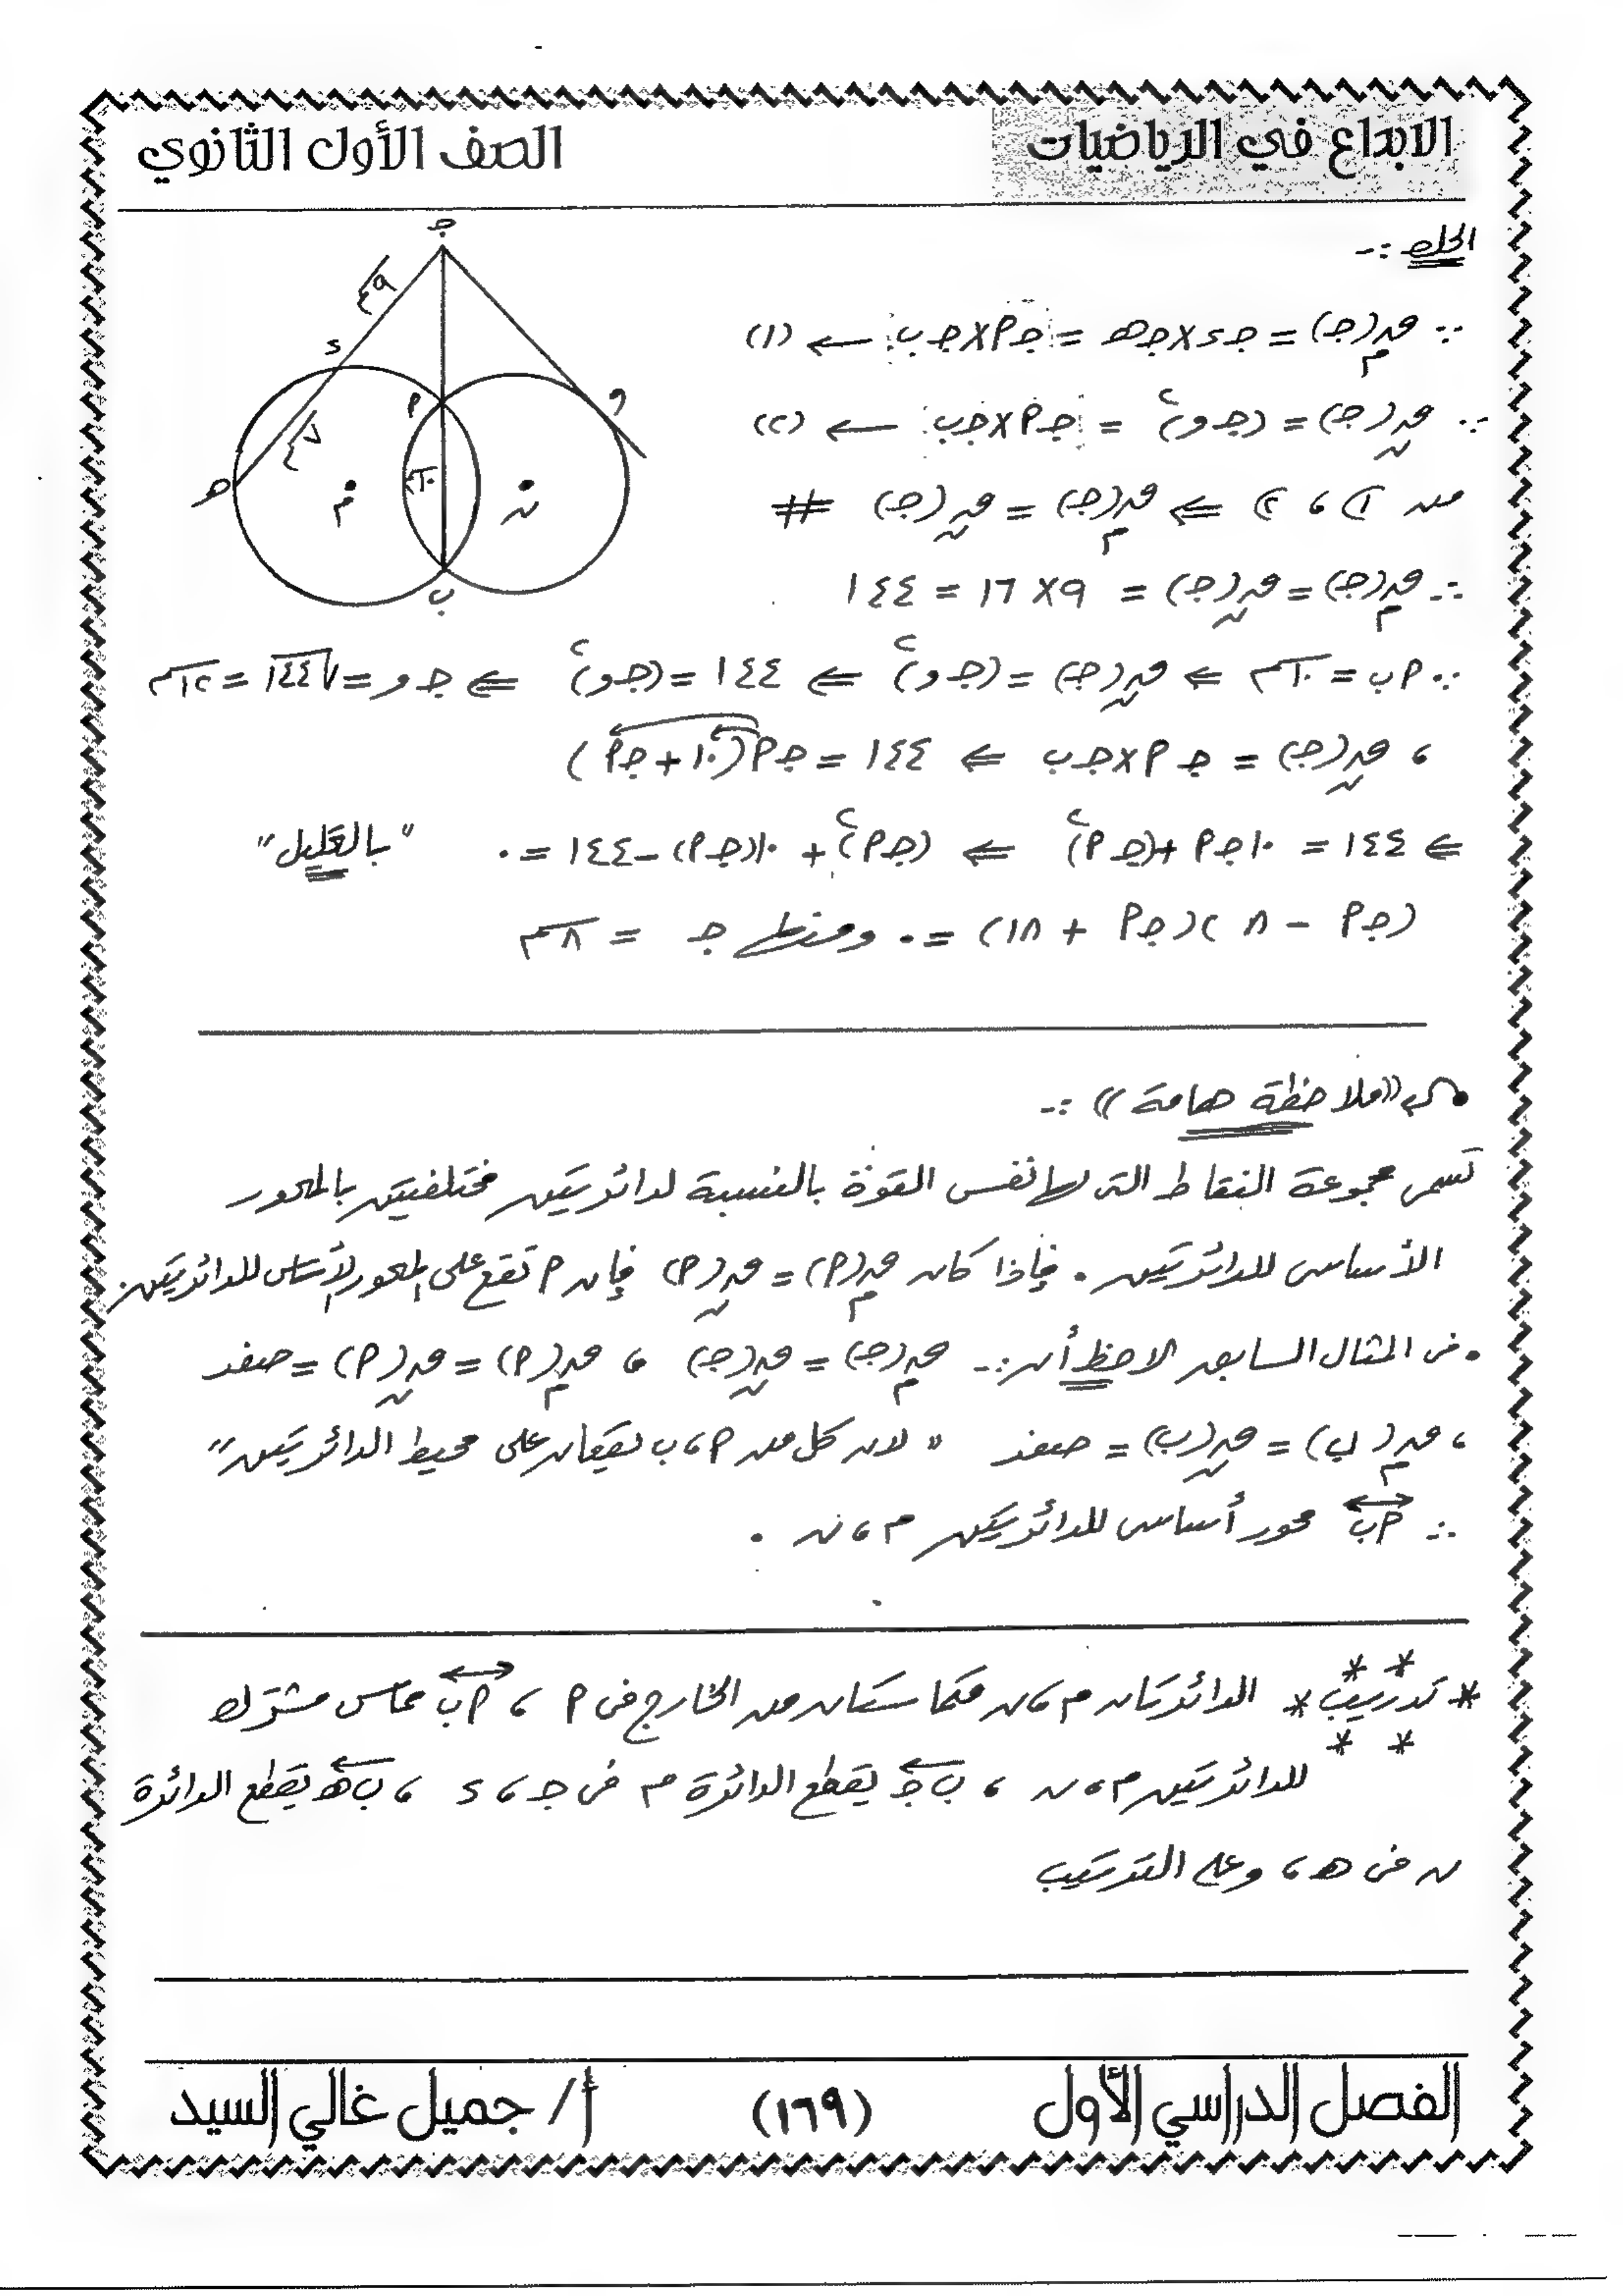 الابداع في الرياضيات
الصف الأول الثانوي
الحل :-
∵ قم(جـ) = جـد × جـهـ = جـأ × جـب ← (١)
∵ قن(جـ) = (جـو)² = جـأ × جـب ← (٢)
من ١ ، ٢ ⇐ قم(جـ) = قن(جـ) #
∴ قم(جـ) = قن(جـ) = ٩ × ١٦ = ١٤٤
∵ أب = ١٠سم ⇐ قن(جـ) = (جـو)² ⇐ ١٤٤ = (جـو)² ⇐ جـو = √١٤٤ = ١٢سم
، قن(جـ) = جـأ × جـب ⇐ ١٤٤ = جـأ(١٠ + جـأ)
⇐ ١٤٤ = ١٠جـأ + (جـأ)² ⇐ (جـأ)² + ١٠(جـأ) - ١٤٤ = ٠ "بالتحليل"
(جـأ - ٨)(جـأ + ١٨) = ٠ ومنها جـ = ٨سم
جـ
٩سم
د
٧سم
هـ
م
أ
١٠سم
ب
ن
و
«ملاحظة هامة» :-
تسمى مجموعة النقاط التى لها نفس القوة بالنسبة لدائرتين مختلفتين بالمحور
الأساسى للدائرتين . فإذا كان قم(أ) = قن(أ) فإن أ تقع على المحور الأساسى للدائرتين .
• فى المثال السابق لاحظ أن :- قم(جـ) = قن(جـ) ، قم(أ) = قن(أ) = صفر
، قم(ب) = قن(ب) = صفر " لان كل من أ ، ب يقعان على محيط الدائرتين "
∴ أب محور أساسى للدائرتين م ، ن .
* تدريب * الدائرتان م ، ن متماستان من الخارج فى أ ، أب مماس مشترك
للدائرتين م ، ن ، ب جـ يقطع الدائرة م فى جـ ، د ، ب هـ يقطع الدائرة
ن فى هـ ، و على الترتيب
الفصل الدراسي الأول
(١٦٩)
أ/ جميل غالي السيد